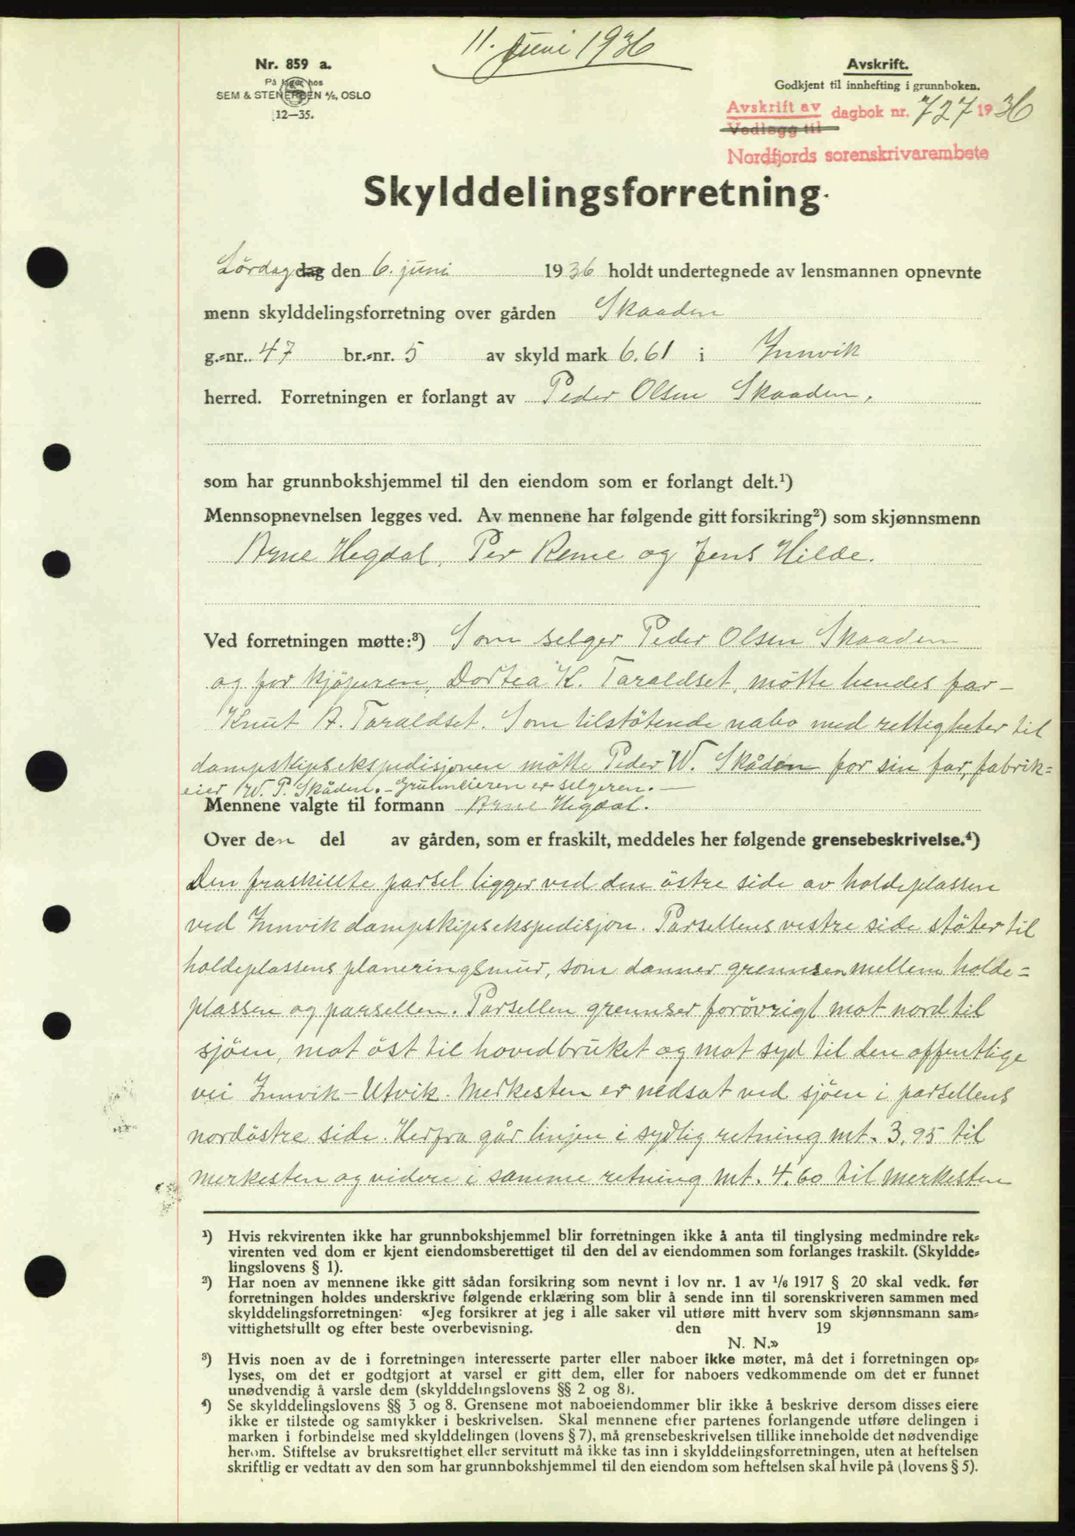 11. Juni 1936
Nr. 859 a.
På lager hos
SEM & STENERSEN A/S, OSLO
12—35.
Avskrift.
Godkjent til innhefting i grunnboken.
Avskrift av dagbok nr. 727 1936
Vedlegg til
Nordfjords sorenskrivarembete
Skylddelingsforretning.
Lördag dag den 6. juni 1936 holdt undertegnede av lensmannen opnevnte
menn skylddelingsforretning over gården Skaaden
g.-nr. 47 br.-nr. 5 av skyld mark 6.61 i Innvik
herred. Forretningen er forlangt av Peder Olsen Skaaden.
som har grunnbokshjemmel til den eiendom som er forlangt delt.¹)
Mennsopnevnelsen legges ved. Av mennene har følgende gitt forsikring²) som skjønnsmenn
Arne Hegdal, Per Reme og Jens Hilde.
Ved forretningen møtte:³) Som selger Peder Olsen Skaaden
og for kjöperen, Dortea K. Taraldset, mötte hendes far
Knut A. Taraldset. Som tilstötende nabo med rettigheter til
dampskipsekspedisjonen mötte Peder W. Skåden for sin far, fabrik-
eier W. P. Skåden. - Grunneieren er selgeren. —
Mennene valgte til formann Arne Hegdal.
Over den del av gården, som er fraskilt, meddeles her følgende grensebeskrivelse.⁴)
Den fraskillte parsel ligger ved den östre side av holdeplassen
ved Innvik dampskipsekspedisjon. Parsellens vestre side stöter til
holdeplassens planeringsmur, som danner grennsen mellem holde-
plassen og parsellen. Parsellen grennser forövrigt mot nord til
sjöen, mot öst til hovedbruket og mot syd til den offentlige
vei Innvik - Utvik. Merkesten er nedsat ved sjöen i parsellens
nordöstre side. Herfra går linjen i sydlig retning mt. 3,95 til
merkesten og videre i samme retning mt. 4.60 til merkesten
¹) Hvis rekvirenten ikke har grunnbokshjemmel blir forretningen ikke å anta til tinglysing medmindre rek-
virenten ved dom er kjent eiendomsberettiget til den del av eiendommen som forlanges fraskilt. (Skyldde-
lingslovens § 1).
²) Har noen av mennene ikke gitt sådan forsikring som nevnt i lov nr. 1 av ¹/₆ 1917 § 20 skal vedk. før
forretningen holdes underskrive følgende erklæring som blir å sende inn til sorenskriveren sammen med
skylddelingsforretningen: «Jeg forsikrer at jeg i alle saker vil utføre mitt hverv som skjønnsmann sam-
vittighetsfullt og efter beste overbevisning. den 19
N. N.»
³) Hvis noen av de i forretningen interesserte parter eller naboer ikke møter, må det i forretningen op-
lyses, om det er godtgjort at varsel er gitt dem, eller for naboers vedkommende om det er funnet
unødvendig å varsle dem (skylddelingslovens §§ 2 og 8).
⁴) Se skylddelingslovens §§ 3 og 8. Grensene mot naboeiendommer blir ikke å beskrive dersom disses eiere
ikke er tilstede og samtykker i beskrivelsen. Skal mennene efter partenes forlangende utføre delingen i
marken i forbindelse med skylddelingen (lovens § 7), må grensebeskrivelsen tillike inneholde det nødvendige
herom. Stiftelse av bruksrettighet eller servitutt må ikke tas inn i skylddelingsforretningen, uten at heftelsen
skriftlig er vedtatt av den som har grunnbokshjemmel til den eiendom som heftelsen skal hvile på (lovens § 5).